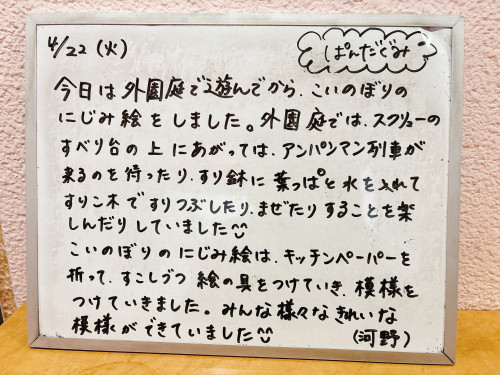 4/22 (火)
ぱんだぐみ
今日は外園庭で遊んでから、こいのぼりの
にじみ絵をしました。外園庭では、スクリューの
すべり台の上にあがっては、アンパンマン列車が
来るのを待ったり、すり鉢に葉っぱと水を入れて
すりこ木ですりつぶしたり、まぜたりすることを楽
しんだりしていました
こいのぼりのにじみ絵は、キッチンペーパーを
折って、すこしづつ絵の具をつけていき、模様を
つけていきました。みんな様々なきれいな
模様ができていました
(河野)